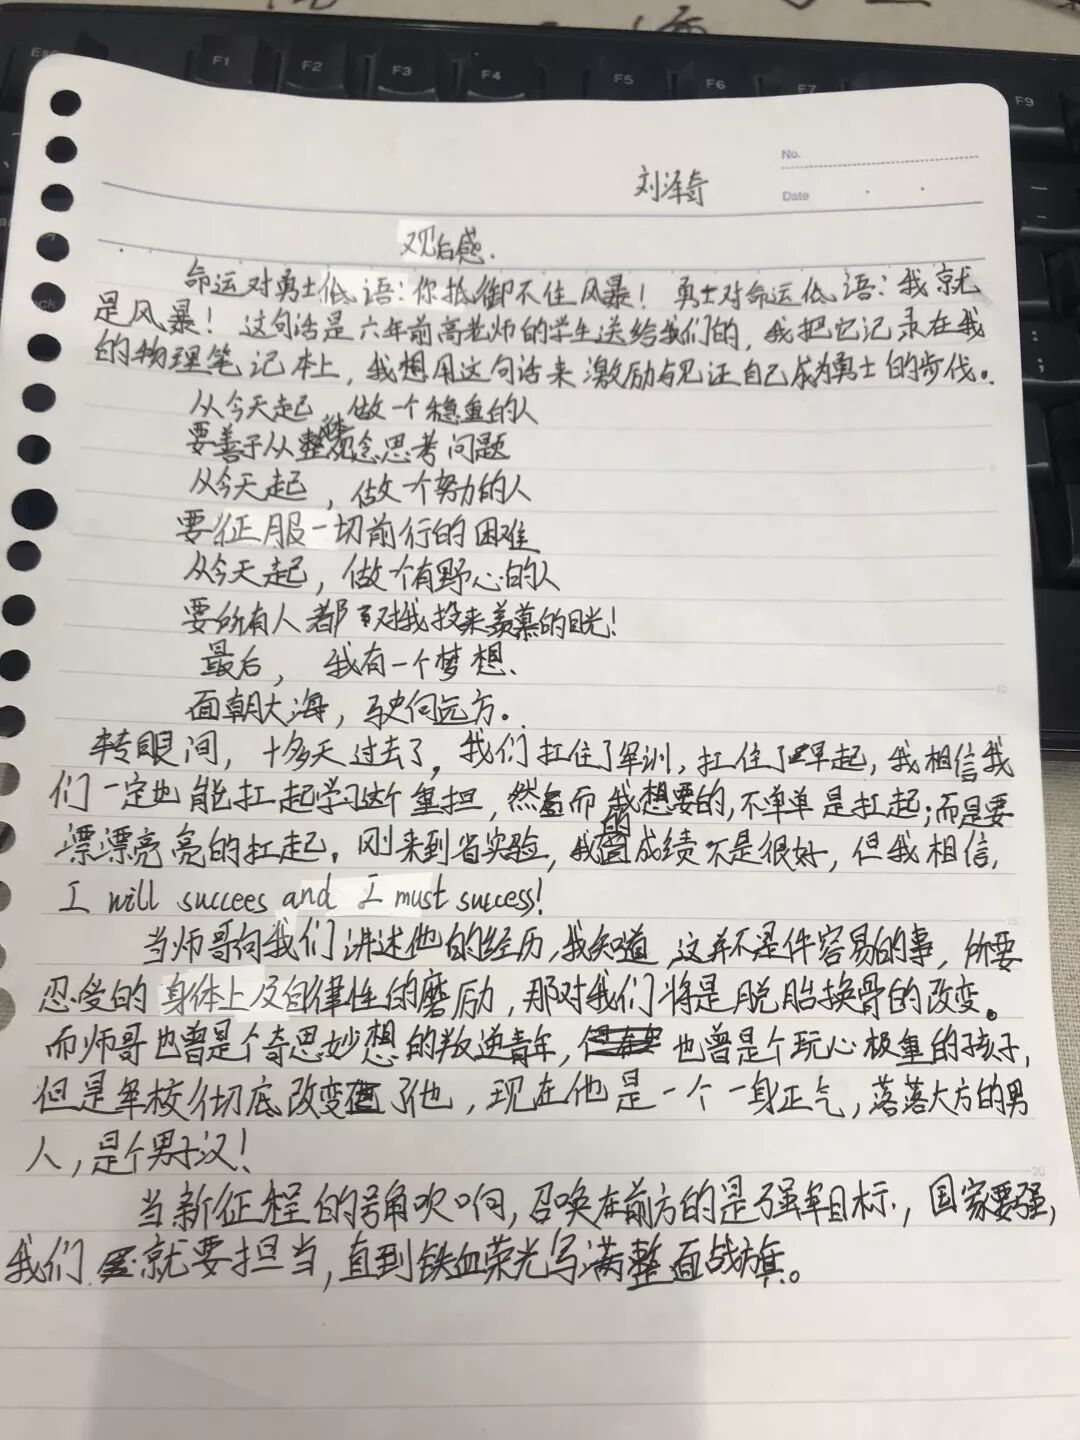 Esc F1 F2 F3 F4 F5 F6 F7 F9
No.
刘泽奇
Date
观后感.
命运对勇士低语:你抵御不住风暴!勇士对命运低语:我就
是风暴!这句话是六年前高老师的学生送给我们的,我把它记录在我
的物理笔记本上,我想用这句话来激励与见证自己成为勇士的步伐。
从今天起,做一个稳重的人
要善于从整体观念思考问题
从今天起,做一个努力的人
要征服一切前行的困难
从今天起,做个有野心的人
要所有人都对我投来羡慕的目光!
最后,我有一个梦想.
面朝大海,驶向远方.
转眼间,十多天过去了,我们扛住了军训,扛住了早起,我相信我
们一定也能扛起学习这个重担,然而我想要的,不单单是扛起;而是要
漂漂亮亮的扛起.刚来到省实验,我的成绩不是很好,但我相信,
I will succees and I must success!
当师哥向我们讲述他的经历,我知道,这并不是件容易的事,所要
忍受的身体上及自律性的磨励,那对我们将是脱胎换骨的改变。
而师哥也曾是个奇思妙想的叛逆青年,也曾是个玩心极重的孩子,
但是军校彻底改变了他,现在他是一个一身正气,落落大方的男
人,是个男子汉!
当新征程的号角吹响,召唤在前方的是强军目标,国家要强,
我们就要担当,直到铁血荣光写满整面战旗。
10
15
20